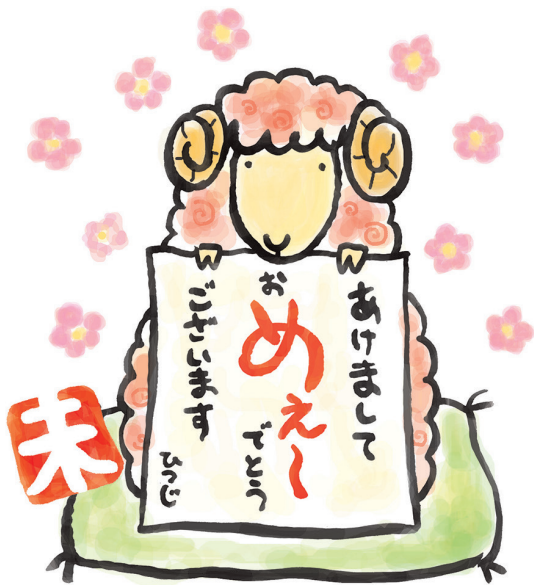 あけまして
おめぇ～でとう
ございます
ひつじ
未